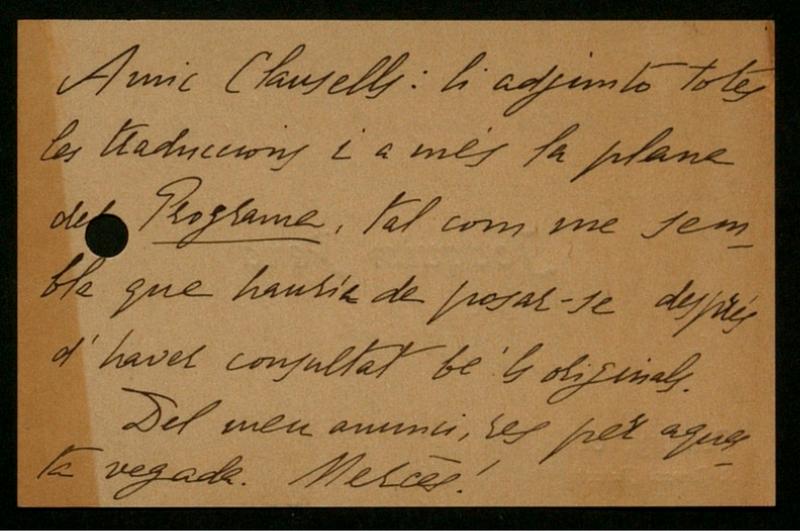 Amic Clausells: li adjunto totes
les traduccions i a més la plana
del Programa, tal com me sem-
bla que hauria de posar-se després
d'haver consultat bé 'ls originals.
Del meu anunci, res per aques-
ta vegada. Mercès!